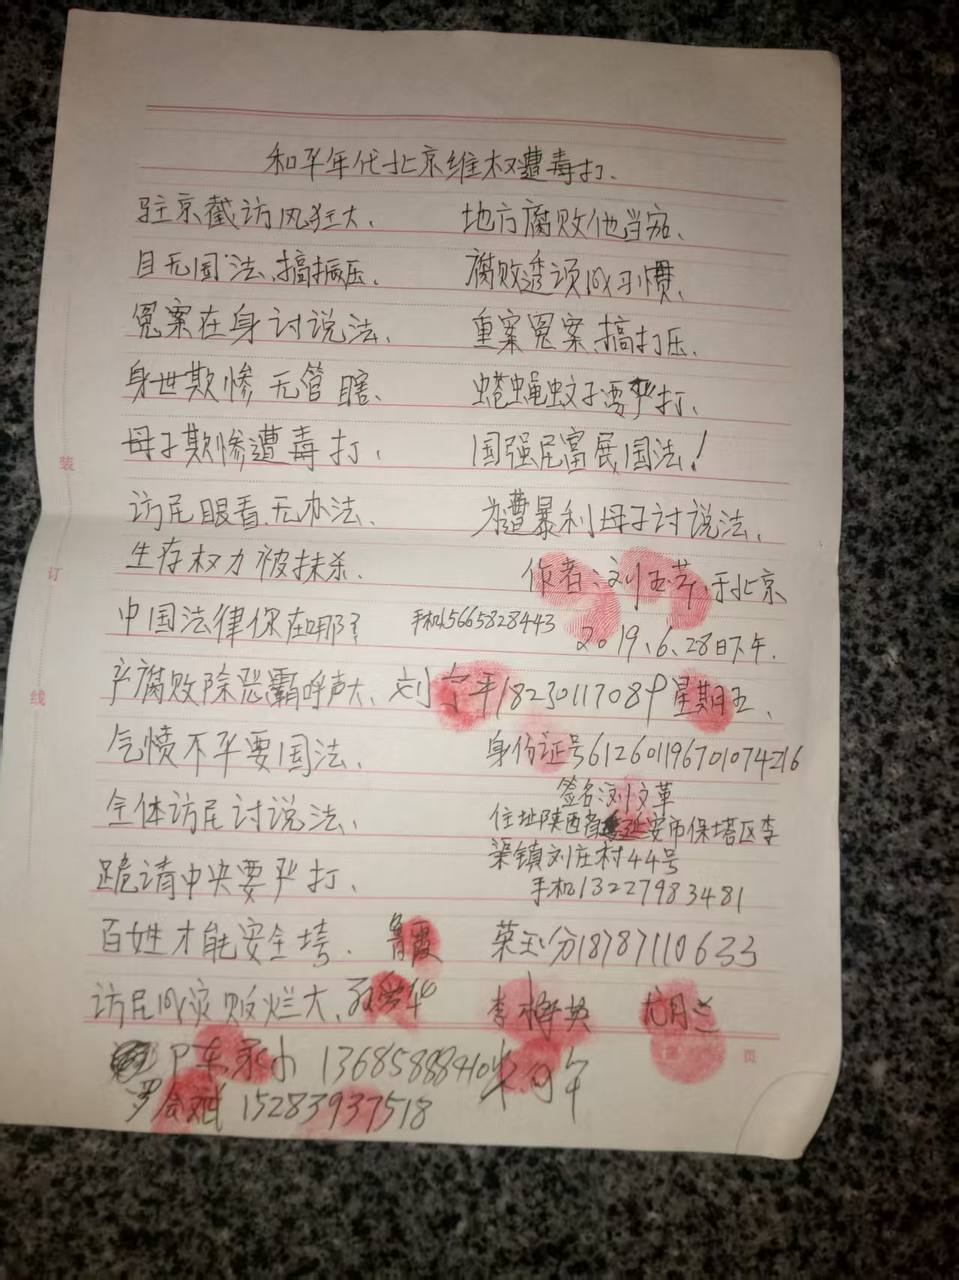 和平年代北京维权遭毒打、
驻京截访风狂大、 地方腐败他当家、
目无国法、搞振压、 腐败透顶成习惯、
冤案在身讨说法、 重案冤案、搞打压、
身世欺惨无管瞎、 蟋蝇蚊子要严打、
母子欺惨遭毒打、 国强民富展国法！
访民眼看无办法、 为遭暴利母子讨说法、
生存权力被抹杀、 作者：刘玉芳、于北京
中国法律你在哪？ 手机15665828443 2019、6、28日下午.
产腐败除恶霸呼声大、 刘 平18230117089 星期五、
气愤不平要国法、 身份证号612601196701074216
签名：刘文革
全体访民讨说法、 住址陕西省延安市保塔区李
渠镇刘庄村44号
跪请中央要严打、 手机13227983481
百姓才能安全 、 霞 18787110633
访民成灾败烂大、 华 李 英 尤月兰
13685888410
罗 斌 15283937518
装
订
线
页